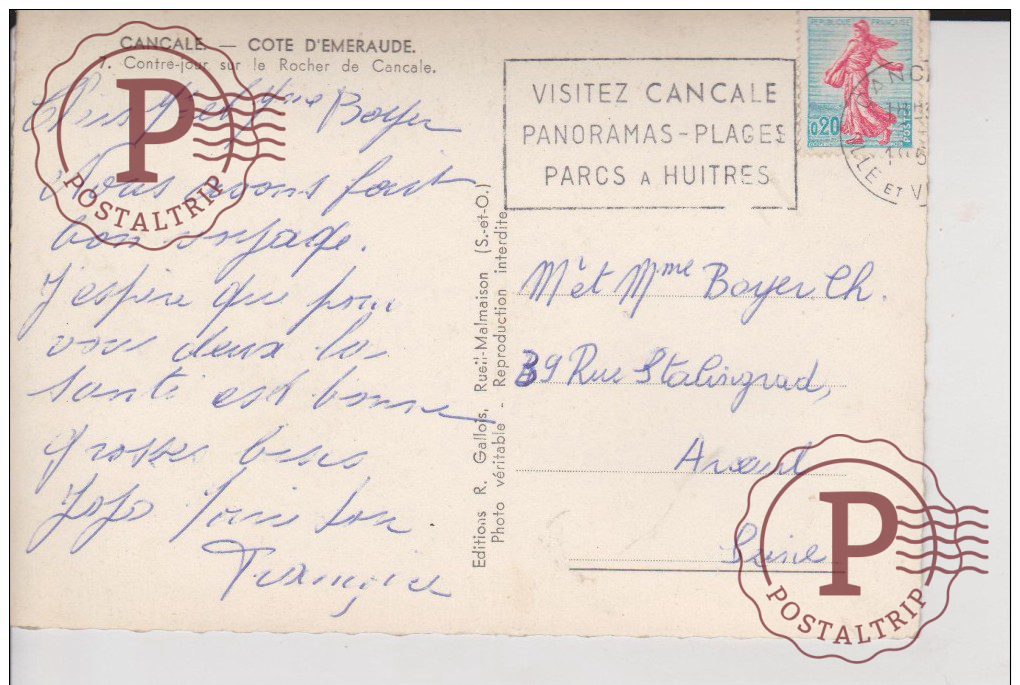 CANCALE. — COTE D'EMERAUDE.
7. Contre-jour sur le Rocher de Cancale.
Boyer
Nous avons fait
bon voyage.
J'espère que pour
vous deux la
santé est bonne
grosses bises
Jojo
Françoise
Editions R. Gallois, Rueil-Malmaison (S.-et-O.)
Photo véritable - Reproduction interdite
VISITEZ CANCALE
PANORAMAS-PLAGES
PARCS A HUITRES
REPUBLIQUE FRANÇAISE
0,20
POSTES
LLE ET V
Mr et Mme Boyer Ch.
39 Rue Stalingrad,
Seine
P
POSTALTRIP
P
POSTALTRIP